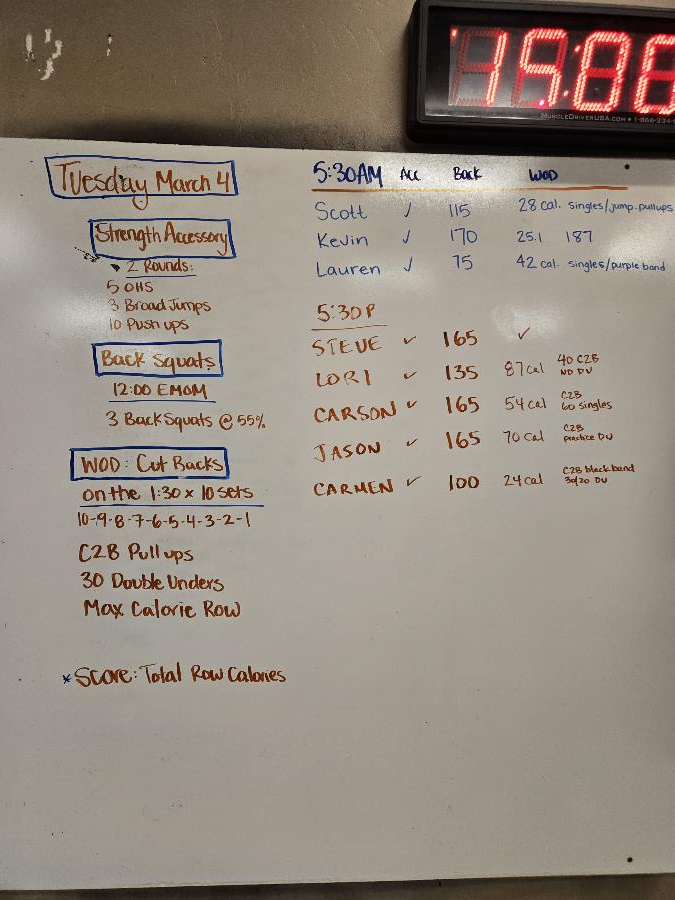 MuscleDriverUSA.com
Tuesday March 4
Strength Accessory
2 Rounds:
5 OHS
3 Broad Jumps
10 Push ups
Back Squats
12:00 EMOM
3 Back Squats @ 55%
WOD: Cut Backs
on the 1:30 x 10 sets
10-9-8-7-6-5-4-3-2-1
C2B Pull ups
30 Double Unders
Max Calorie Row
*Score: Total Row Calories
5:30AM Acc Back WOD
Scott ✓ 115 28 cal. singles/jump.pullups
Kevin ✓ 170 25.1 187
Lauren ✓ 75 42 cal. singles/purple band
5:30P
STEVE ✓ 165 ✓
LORI ✓ 135 87 cal 40 C2B
NO DU
CARSON ✓ 165 54 cal C2B
60 singles
JASON ✓ 165 70 cal C2B
practice DU
CARMEN ✓ 100 24 cal C2B black band
30/20 DU